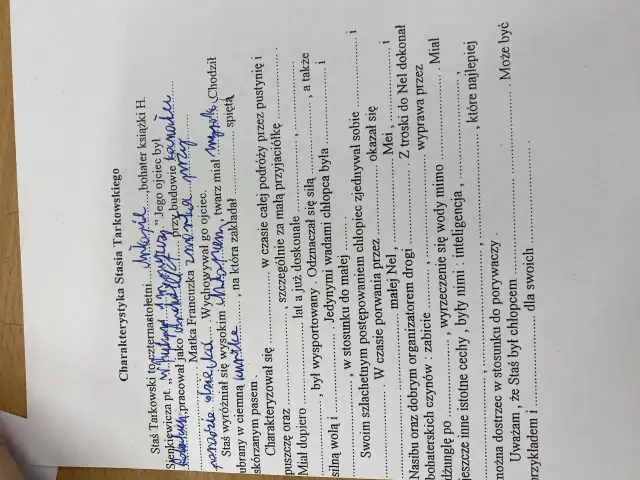 Charakterystyka Stasia Tarkowskiego
Staś Tarkowski to czternastoletni ..........,bohater książki H.
Sienkiewicza pt. „W pustyni i w puszczy." Jego ojciec był
pracował jako .......... przy budowie kanału
.......... Matka Francuzka zmarła przy
porodzie .......... Wychowywał go ojciec.
Staś wyróżniał się wysokim .........., twarz miał .......... Chodził
ubrany w ciemną .........., na która zakładał .......... spiętą
skórzanym pasem .
Charakteryzował się .......... w czasie całej podróży przez pustynię i
puszczę oraz .........., szczególnie za małą przyjaciółkę ..........
Miał dopiero .......... lat a już doskonale ..........,
.........., był wysportowany . Odznaczał się siłą .........., a także
silną wolą i .......... . Jedynymi wadami chłopca była .......... i
.........., w stosunku do małej .......... .
Swoim szlachetnym postępowaniem chłopiec zjednywał sobie .......... i
.......... . W czasie porwania przez .......... okazał się
.......... małej Nel , .......... Mei, .......... i
Nasibu oraz dobrym organizatorem drogi .......... . Z troski do Nel dokonał
bohaterskich czynów : zabicie .........., .......... wyprawa przez
dżunglę po .........., wyrzeczenie się wody mimo .......... . Miał
jeszcze inne istotne cechy , były nimi : inteligencja , ..........,
..........,..........,.........., które najlepiej
można dostrzec w stosunku do porywaczy .
Uważam , że Staś był chłopcem .......... . Może być
przykładem i .......... dla swoich .......... .